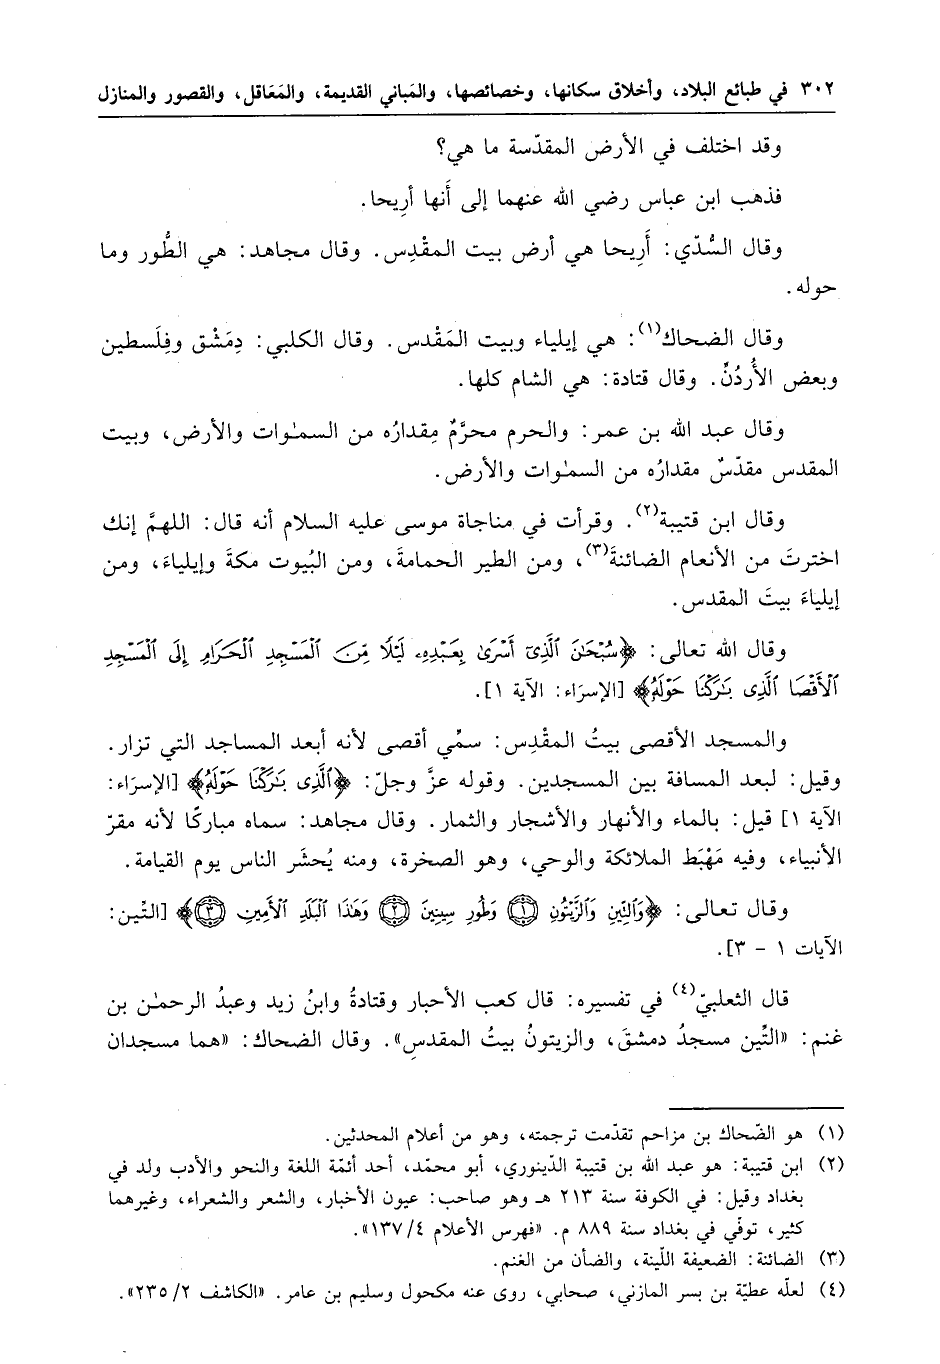 ٣٠٢ في طبائع البلاد، وأخلاق سكانها، وخصائصها، والمَباني القديمة، والمَعَاقل، والقصور والمنازل
وقد اختلف في الأرض المقدّسة ما هي؟
فذهب ابن عباس رضي الله عنهما إلى أَنها أرِيحا.
وقال السُّدّي: أَرِيحا هي أرض بيت المقْدِس. وقال مجاهد: هي الطُّور وما
حوله.
وقال الضحاك(١): هي إيلياء وبيت المَقْدس. وقال الكلبي: دِمَشْق وفِلَسطين
وبعض الأُردُنّ. وقال قتادة: هي الشام كلها.
وقال عبد الله بن عمر: والحرم محرَّمٌ مِقدارُه من السمٰوات والأرض، وبيت
المقدس مقدّسٌ مقدارُه من السمٰوات والأرض.
وقال ابن قتيبة(٢). وقرأت في مناجاة موسى عليه السلام أنه قال: اللهمَّ إنك
اخترتَ من الأنعام الضائنةَ(٣)، ومن الطير الحمامةَ، ومن البُيوت مكةَ وإيلياءَ، ومن
إيلياءَ بيتَ المقدس.
وقال الله تعالى: ﴿سُبْحَٰنَ ٱلَّذِىٓ أَسْرَىٰ بِعَبْدِهِۦ لَيْلًا مِّنَ ٱلْمَسْجِدِ ٱلْحَرَامِ إِلَى ٱلْمَسْجِدِ
ٱلْأَقْصَا ٱلَّذِى بَٰرَكْنَا حَوْلَهُ﴾ [الإسرَاء: الآية ١].
والمسجد الأقصى بيتُ المقْدِس: سمِّي أقصى لأنه أبعد المساجد التي تزار.
وقيل: لبعد المسافة بين المسجدين. وقوله عزَّ وجلّ: ﴿ٱلَّذِى بَٰرَكْنَا حَوْلَهُ﴾ [الإسرَاء:
الآية ١] قيل: بالماء والأنهار والأشجار والثمار. وقال مجاهد: سماه مباركًا لأنه مقرّ
الأنبياء، وفيه مَهْبَط الملائكة والوحي، وهو الصخرة، ومنه يُحشَر الناس يوم القيامة.
وقال تعالى: ﴿وَٱلتِّينِ وَٱلزَّيْتُونِ ١ وَطُورِ سِينِينَ ٢ وَهَٰذَا ٱلْبَلَدِ ٱلْأَمِينِ ٣﴾ [التِّين:
الآيات ١ - ٣].
قال الثعلبيّ(٤) في تفسيره: قال كعب الأحبار وقتادةُ وابنُ زيد وعبدُ الرحمٰن بن
غنم: «التِّين مسجدُ دمشقَ، والزيتونُ بيتُ المقدسِ». وقال الضحاك: «هما مسجدان
(١) هو الضّحاك بن مزاحم تقدّمت ترجمته، وهو من أعلام المحدثين.
(٢) ابن قتيبة: هو عبد الله بن قتيبة الدّينوري، أبو محمّد، أحد أئمّة اللغة والنحو والأدب ولد في
بغداد وقيل: في الكوفة سنة ٢١٣ هـ وهو صاحب: عيون الأخبار، والشعر والشعراء، وغيرهما
كثير، توفّي في بغداد سنة ٨٨٩ م. «فهرس الأعلام ٤/ ١٣٧».
(٣) الضائنة: الضعيفة اللّينة، والضأن من الغنم.
(٤) لعلّه عطيّة بن بسر المازني، صحابي، روى عنه مكحول وسليم بن عامر. «الكاشف ٢/ ٢٣٥».